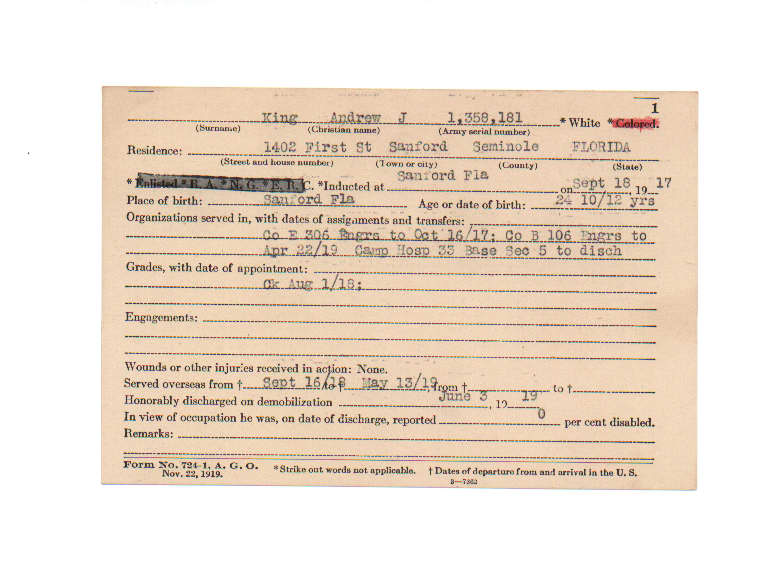 1
King Andrew J 1,358,181 * White * Colored.
(Surname) (Christian name) (Army serial number)
Residence: 1402 First St Sanford Seminole FLORIDA
(Street and house number) (Town or city) (County) (State)
* Enlisted * R. A. * N. G. * E. R. C. *Inducted at Sanford Fla on Sept 18, 1917
Place of birth: Sanford Fla Age or date of birth: 24 10/12 yrs
Organizations served in, with dates of assignments and transfers:
Co E 306 Engrs to Oct 16/17; Co B 106 Engrs to
Apr 22/19 Camp Hosp 33 Base Sec 5 to disch
Grades, with date of appointment:
Ck Aug 1/18;
Engagements:
Wounds or other injuries received in action: None.
Served overseas from † Sept 16/18 to † May 13/19, from † to †
Honorably discharged on demobilization June 3, 1919
In view of occupation he was, on date of discharge, reported 0 per cent disabled.
Remarks:
Form No. 724-1, A. G. O. * Strike out words not applicable. † Dates of departure from and arrival in the U. S.
Nov. 22, 1919.
3—7362